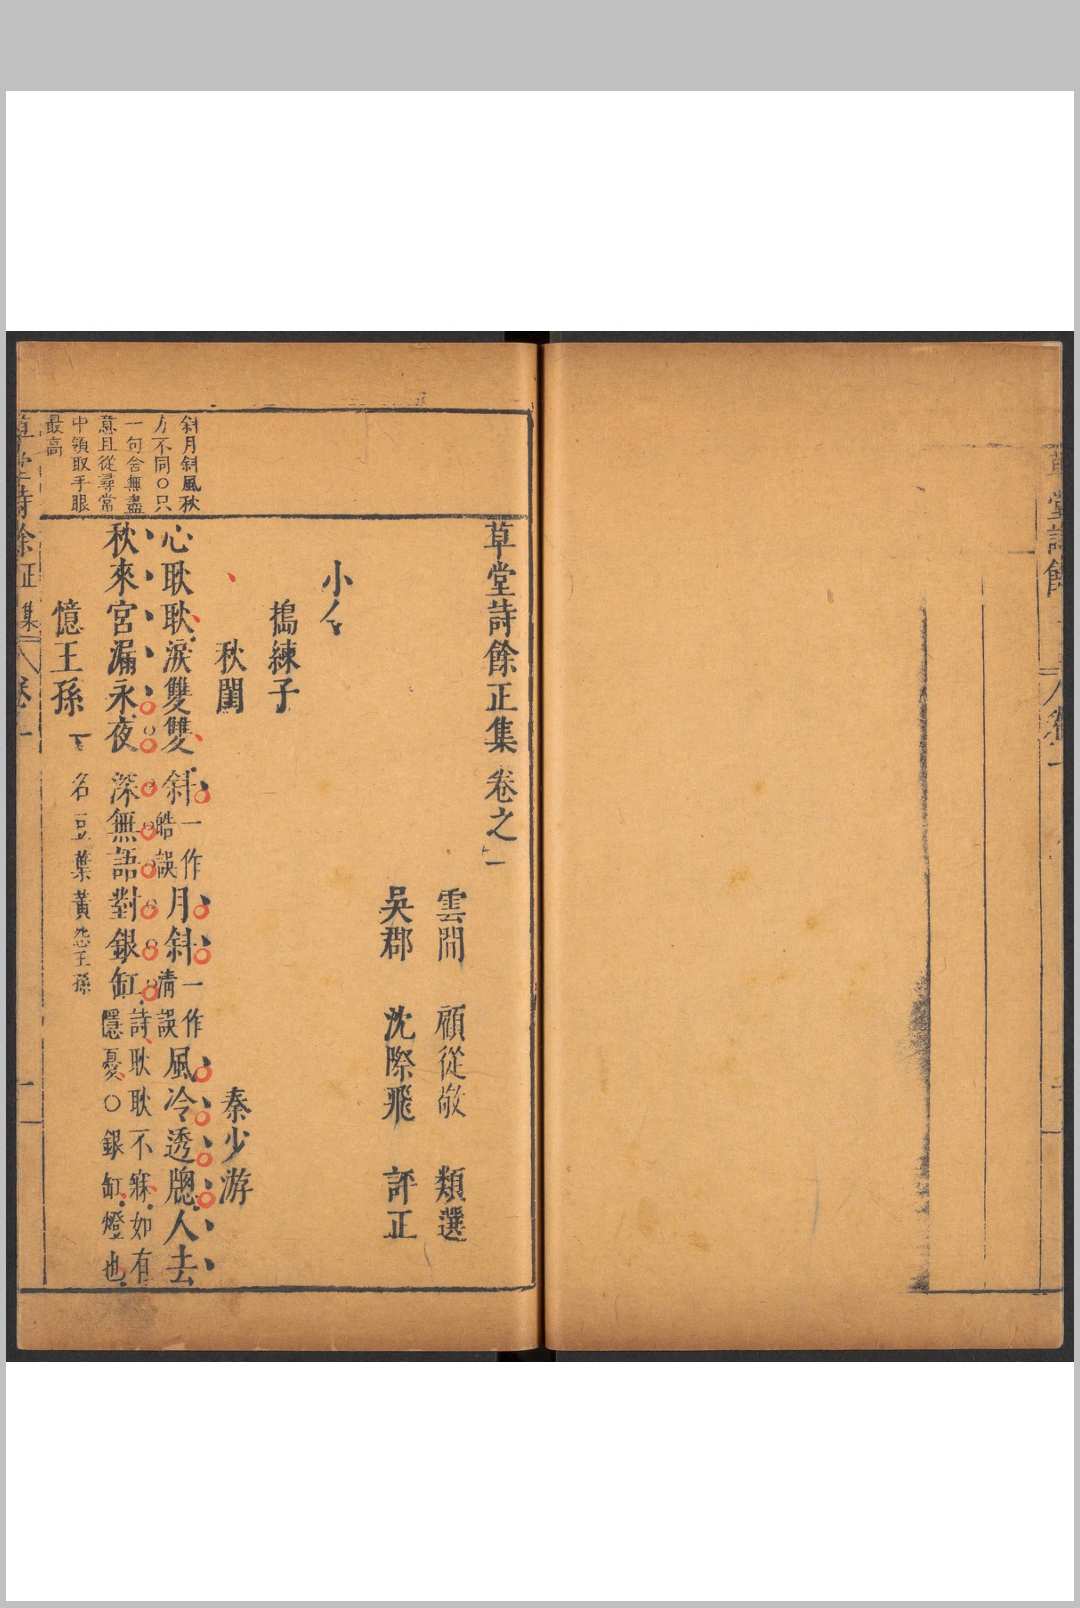 草堂詩餘正集卷之一
雲間 顧從敬 類選
吳郡 沈際飛 評正
小令
搗練子
秋閨 秦少游
心耿耿淚雙雙斜一作皓誤月斜一作清誤風冷透牕人去
秋來宮漏永夜深無語對銀缸詩耿耿不寐如有隱憂○銀缸燈也
憶王孫 一名豆葉黃怨王孫
斜月斜風秋
方不同○只
一句含無盡
意且從尋常
中領取手眼
最高
草堂詩餘正集 卷一
草堂詩餘